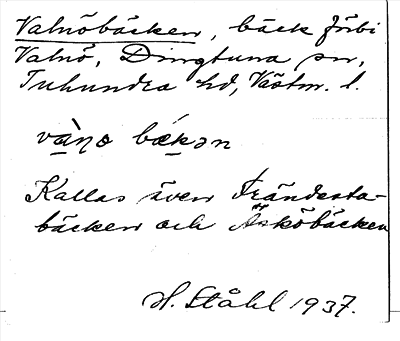 Valnöbäcken, bäck förbi
Valnö, Dingtuna sn,
Tuhundra hd, Västm. l.
Kallas även Frändesta-
bäcken och Äsköbäcken
H. Ståhl 1937.